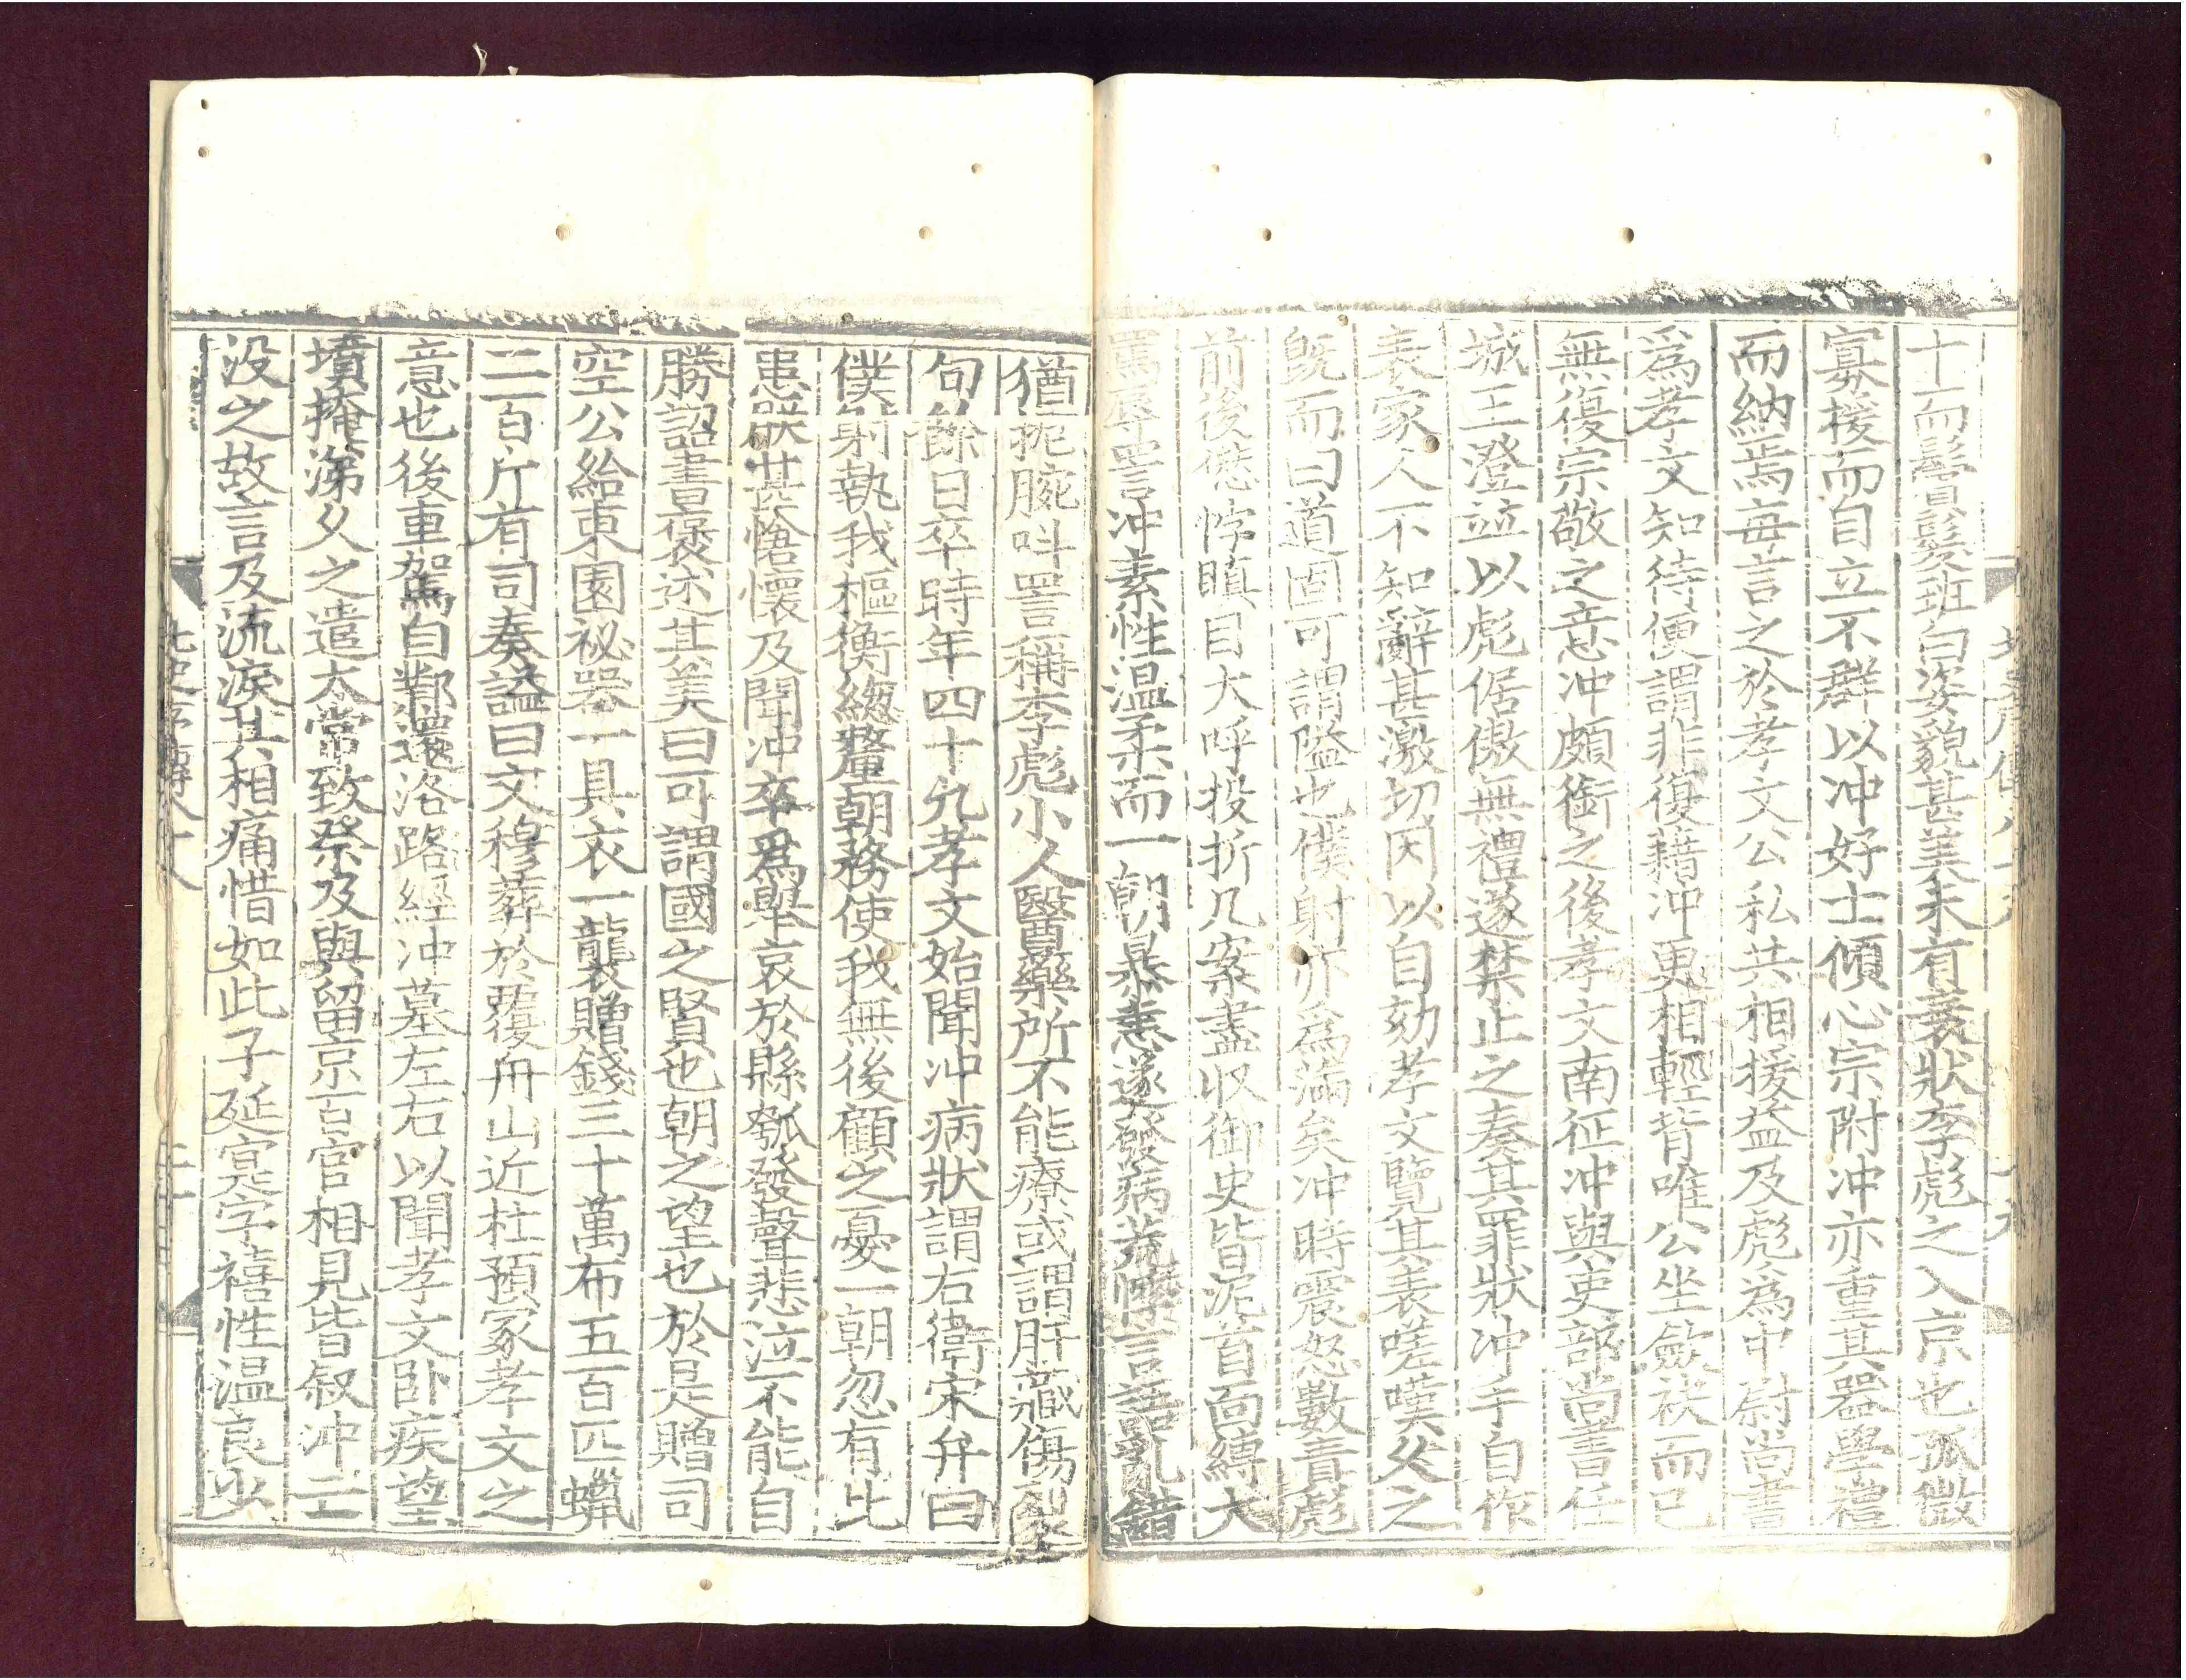 十而鬢髮班白姿貌甚美未有衰狀李彪之入京也孤微
寡援而自立不群以冲好士傾心宗附冲亦重其器學禮
而納焉每言之於孝文公私共相援益及彪爲中尉尚書
爲孝文知待便謂非復藉冲更相輕背唯公坐斂袂而已
無復宗敬之意冲頗銜之後孝文南征冲與吏部尚書任
城王澄並以彪倨傲無禮遂禁止之奏其罪狀冲手自作
表家人不知辭甚激切因以自劾孝文覽其表嗟嘆久之
旣而曰道固可謂隘也僕射亦爲滿矣冲時震怒數責彪
前後愆悖瞋目大呼投折几案盡収御史皆泥首面縛大
罵辱詈冲素性温柔而一朝暴恚遂發病荒悸言語亂錯
猶扼腕呌詈稱李彪小人醫藥所不能療或謂肝藏傷裂
旬餘日卒時年四十九孝文始聞冲病狀謂右衛宋弁曰
僕射執我樞衡緫釐朝務使我無後顧之憂一朝忽有此
患朕甚愴懷及聞冲卒爲舉哀於縣瓠發聲悲泣不能自
勝詔書襃述其美曰可謂國之賢也朝之望也於是贈司
空公給東園祕器一具衣一襲贈錢三十萬布五百匹蠟
二百斤有司奏謚曰文穆葬於覆舟山近杜預冢孝文之
意也後車駕自鄴還洛路經冲墓左右以聞孝文卧疾望
墳掩涕久之遣太常致祭及與留京百官相見皆叙冲亡
没之故言及流淚其相痛惜如此子延寔字禧性温良少
北史序傳八十八